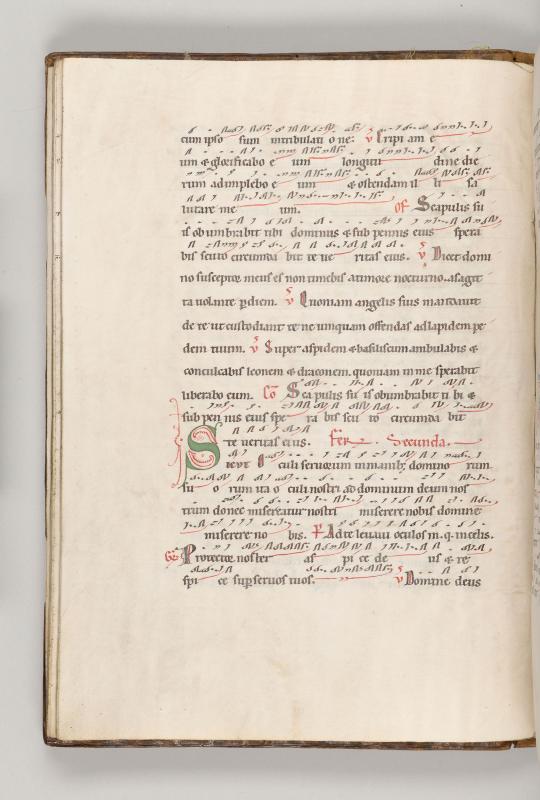 cum ipso sum intribulati o ne: v Eripi am e
um & glorificabo e um longitu dine die
rum adimplebo e um & ostendam il li sa
lutare me um. Of Scapulis su
is obumbrabit tibi dominus & sub pennis eius spera
bis scuto circumda bit te ue ritas eius. v Dicet domi
no susceptor meus es non timebis atimore nocturno. asagit
ta uolante p diem. v Quoniam angelis suis mandauit
de te ut custodiant te ne umquam offendas adlapidem pe
dem tuum. v Super aspidem & basiliscum ambulabis &
conculcabis leonem & draconem. quoniam in me sperabit
liberabo eum. Co Scapulis su is obumbrabit ti bi &
sub pen nis eius spe ra bis scu to circumda bit
te ueritas eius. Fer Secunda.
Sicut o culi seruorum inmanib; domino rum
su o rum ita o culi nostri ad dominum deum nos
trum donec misereatur nostri miserere nobis domine
miserere no bis. P Adte leuaui oculos m. q. in celis.
Gr Protector noster as pi ce de us & re
spi ce sup seruos tuos. v Domine deus